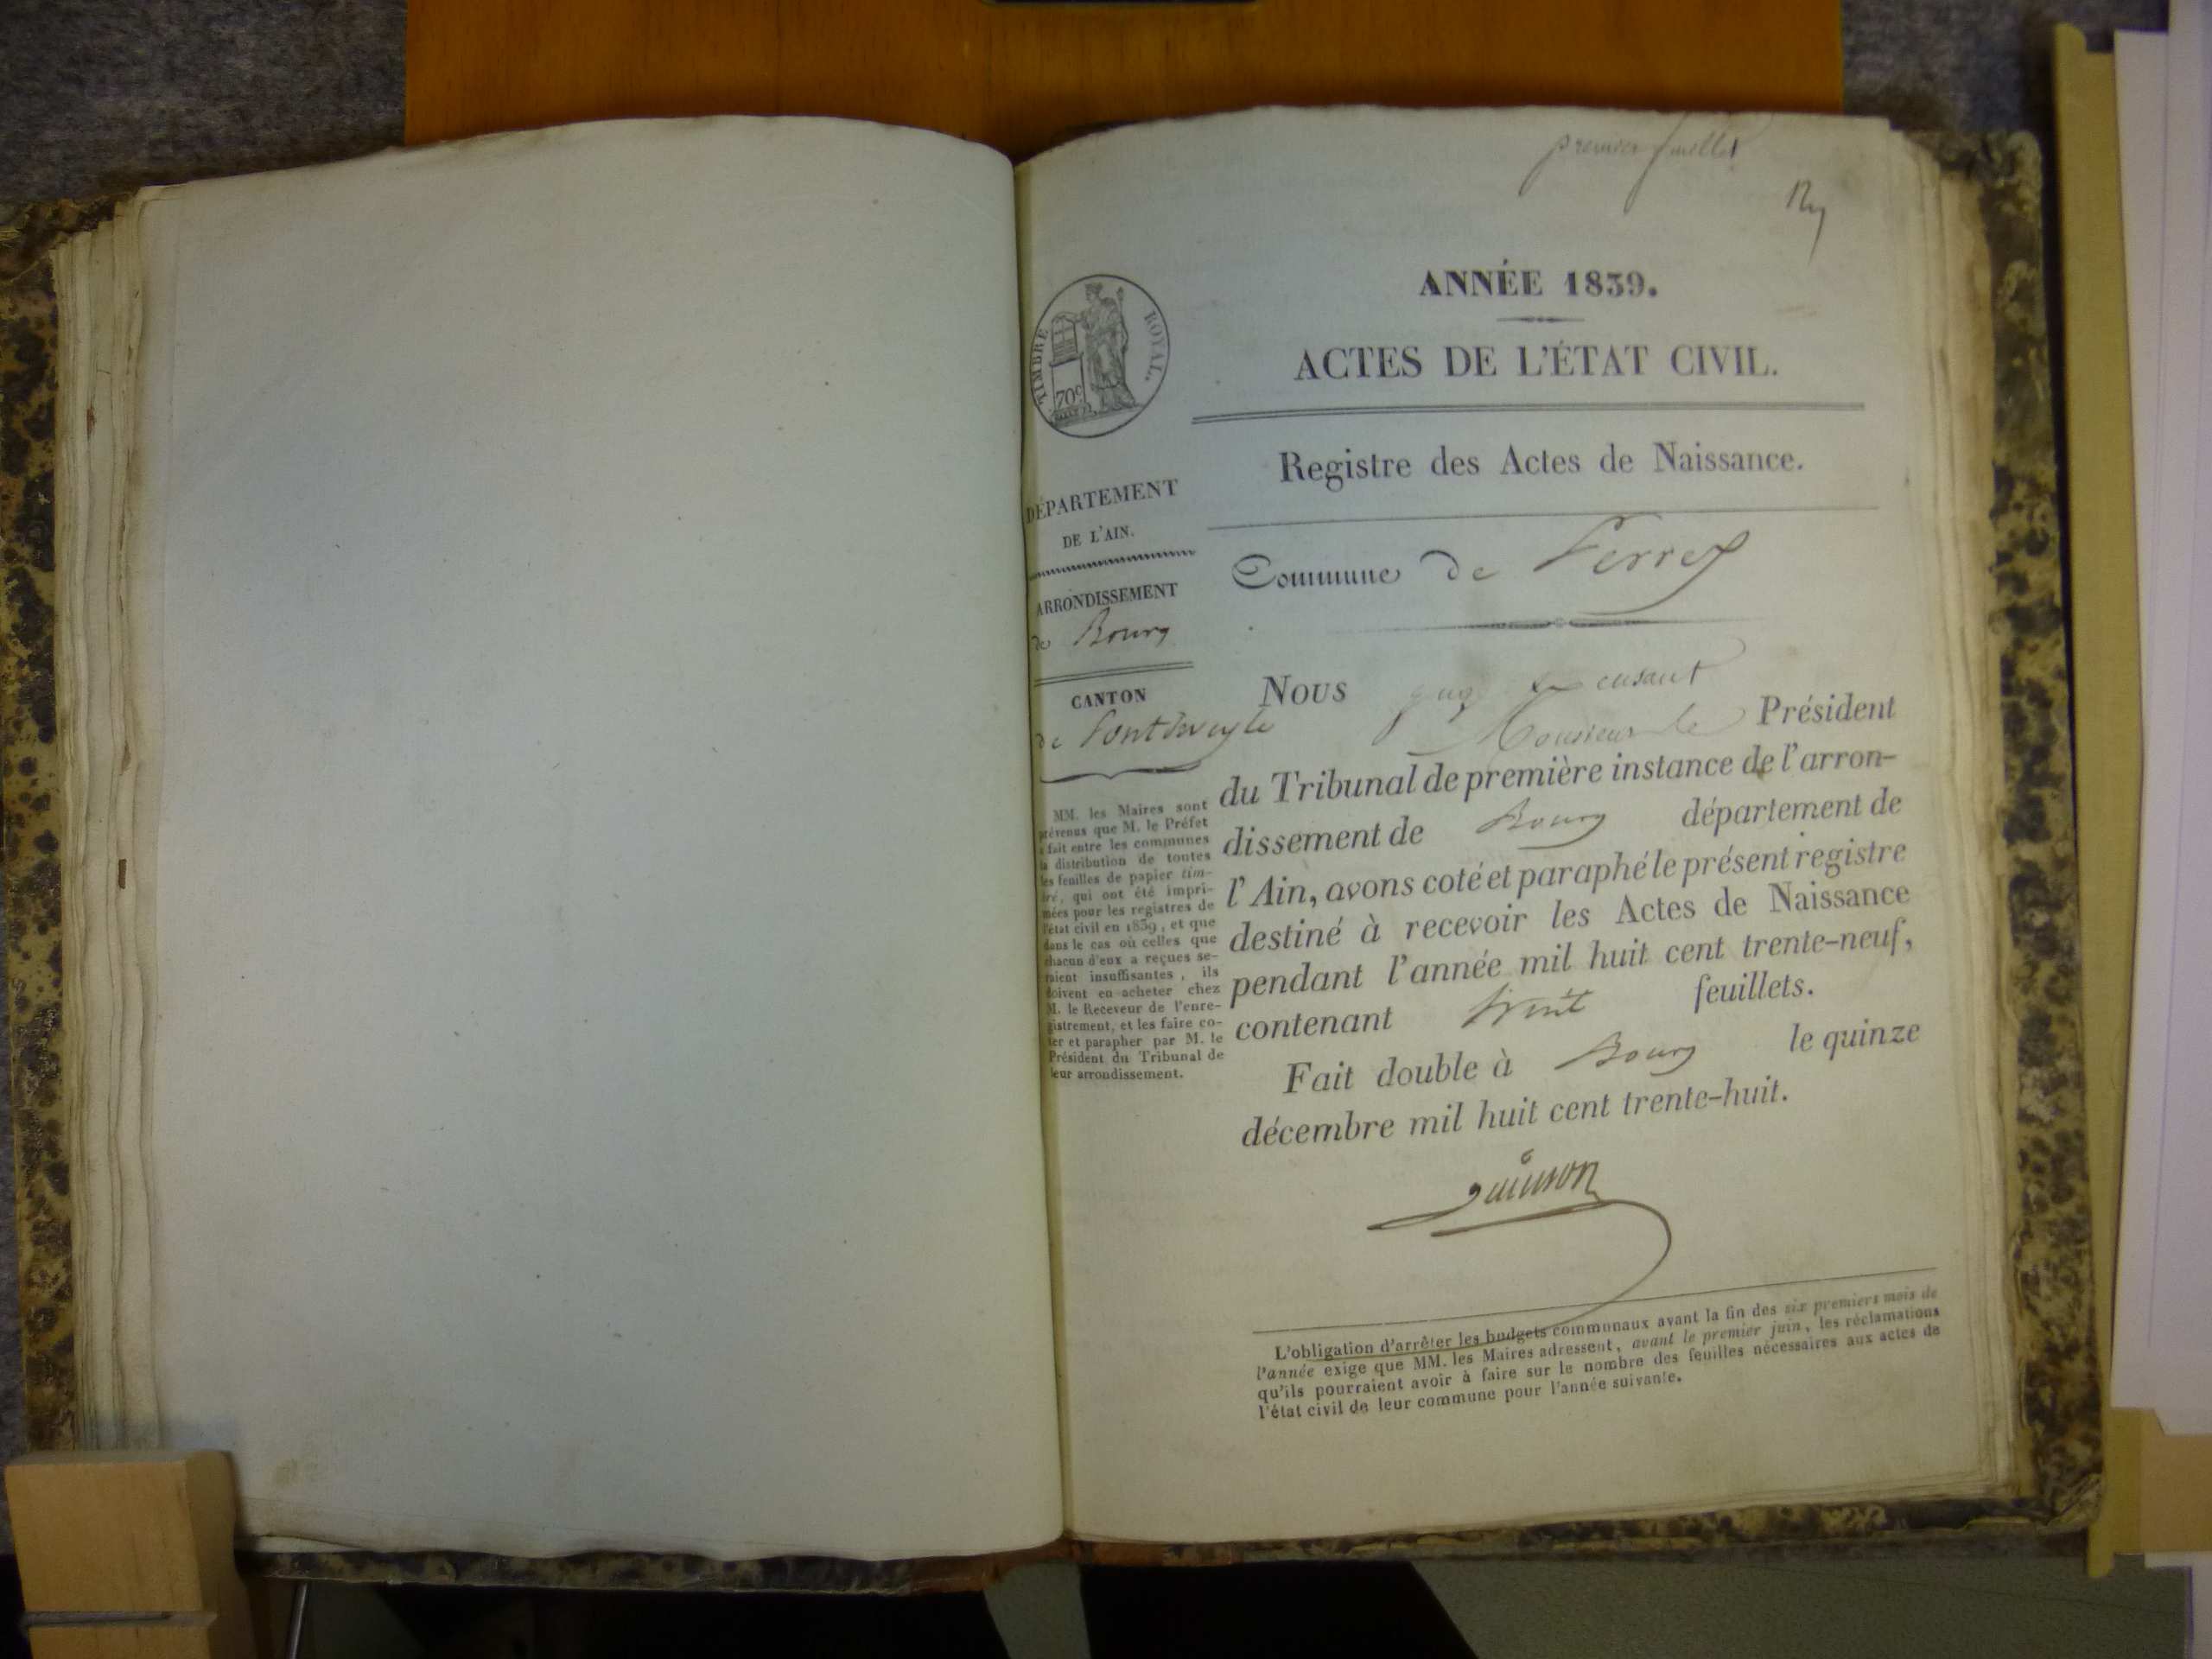 premier feuillet
ANNÉE 1839.
ACTES DE L'ÉTAT CIVIL.
TIMBRE ROYAL.
70c
Registre des Actes de Naissance.
DÉPARTEMENT
DE L'AIN.
ARRONDISSEMENT
de Bourg
CANTON
de Pontdeveyle
MM. les Maires sont
prévenus que M. le Préfet
a fait entre les communes
la distribution de toutes
les feuilles de papier tim-
bré, qui ont été impri-
mées pour les registres de
l'état civil en 1839, et que
dans le cas où celles que
chacun d'eux a reçues se-
raient insuffisantes, ils
doivent en acheter chez
M. le Receveur de l'enre-
gistrement, et les faire co-
ter et parapher par M. le
Président du Tribunal de
leur arrondissement.
Commune de Perrex
Nous juge
Monsieur le Président
du Tribunal de première instance de l'arron-
dissement de Bourg département de
l'Ain, avons coté et paraphé le présent registre
destiné à recevoir les Actes de Naissance
pendant l'année mil huit cent trente-neuf,
contenant feuillets.
Fait double à Bourg le quinze
décembre mil huit cent trente-huit.
L'obligation d'arrêter les budgets communaux avant la fin des six premiers mois de
l'année exige que MM. les Maires adressent, avant le premier juin, les réclamations
qu'ils pourraient avoir à faire sur le nombre des feuilles nécessaires aux actes de
l'état civil de leur commune pour l'année suivante.